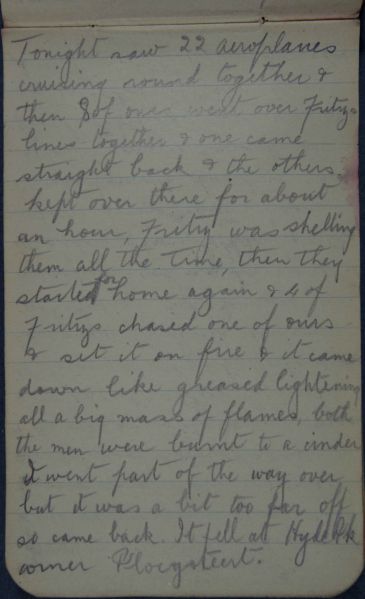 Tonight saw 22 aeroplanes
cruising round together &
then 8 of ours went over Fritzs
lines together & one came
straight back & the others
kept over there for about
an hour, Fritz was shelling
them all the time, then they
started for home again & 4 of
Fritzs chased one of ours
& set it on fire & it came
down like greased lightening
all a big mass of flames, both
the men were burnt to a cinder
I went part of the way over
but it was a bit too far off
so came back. It fell at Hyde Pk
corner Ploegsteert.